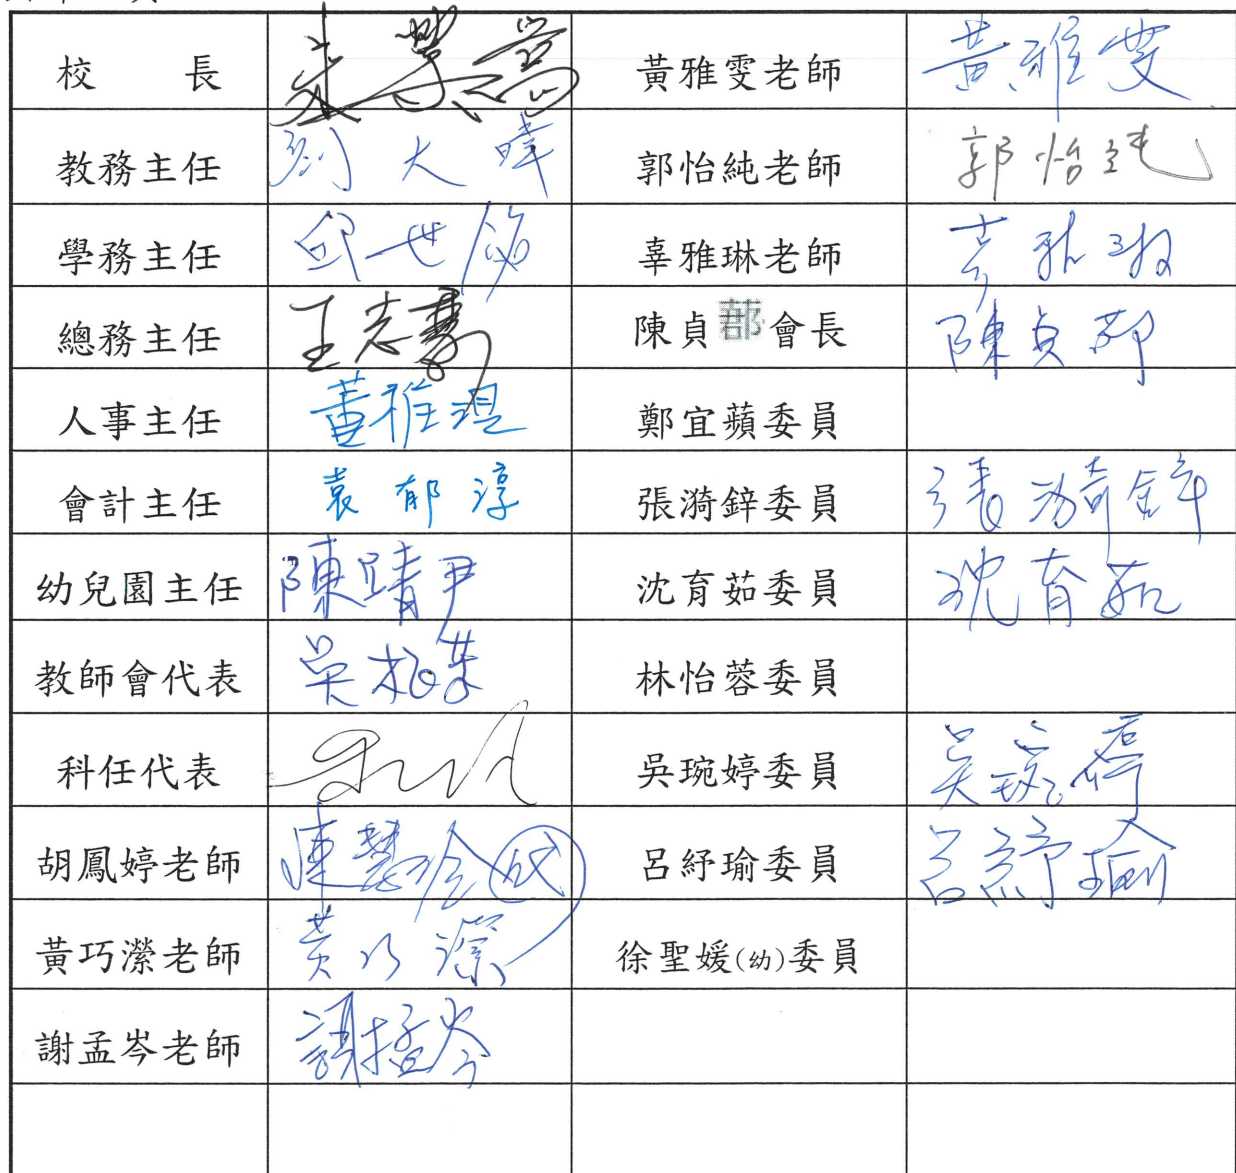 校 長 黃雅雯老師 黃雅雯
教務主任 劉大暐 郭怡純老師 郭怡純
學務主任 邱世 辜雅琳老師
總務主任 王志騫 陳貞蔀會長 陳貞蔀
人事主任 黃雅琨 鄭宜蘋委員
會計主任 袁郁淳 張漪鋅委員 張漪鋅
幼兒園主任 陳靖尹 沈育茹委員 沈育茹
教師會代表 吳 林怡蓉委員
科任代表 吳琬婷委員 吳琬婷
胡鳳婷老師 陳慧玲代 呂紓瑜委員 呂紓瑜
黃巧瀠老師 黃巧瀠 徐聖媛(幼)委員
謝孟岑老師 謝孟岑